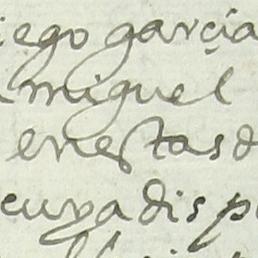 iego garçia
miguel
en estas d
cuya disp